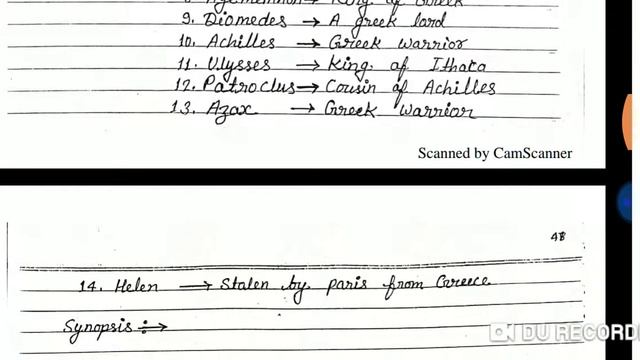 8. Agamemnon → King of Greek
9. Diomedes → A greek lord
10. Achilles → Greek warrior
11. Ulysses → King of Ithata
12. Patroclus → Cousin of Achilles
13. Azax → Greek warrior
Scanned by CamScanner
48
14. Helen → Stalen by paris from Greece
Synopsis ÷→
DU RECORD